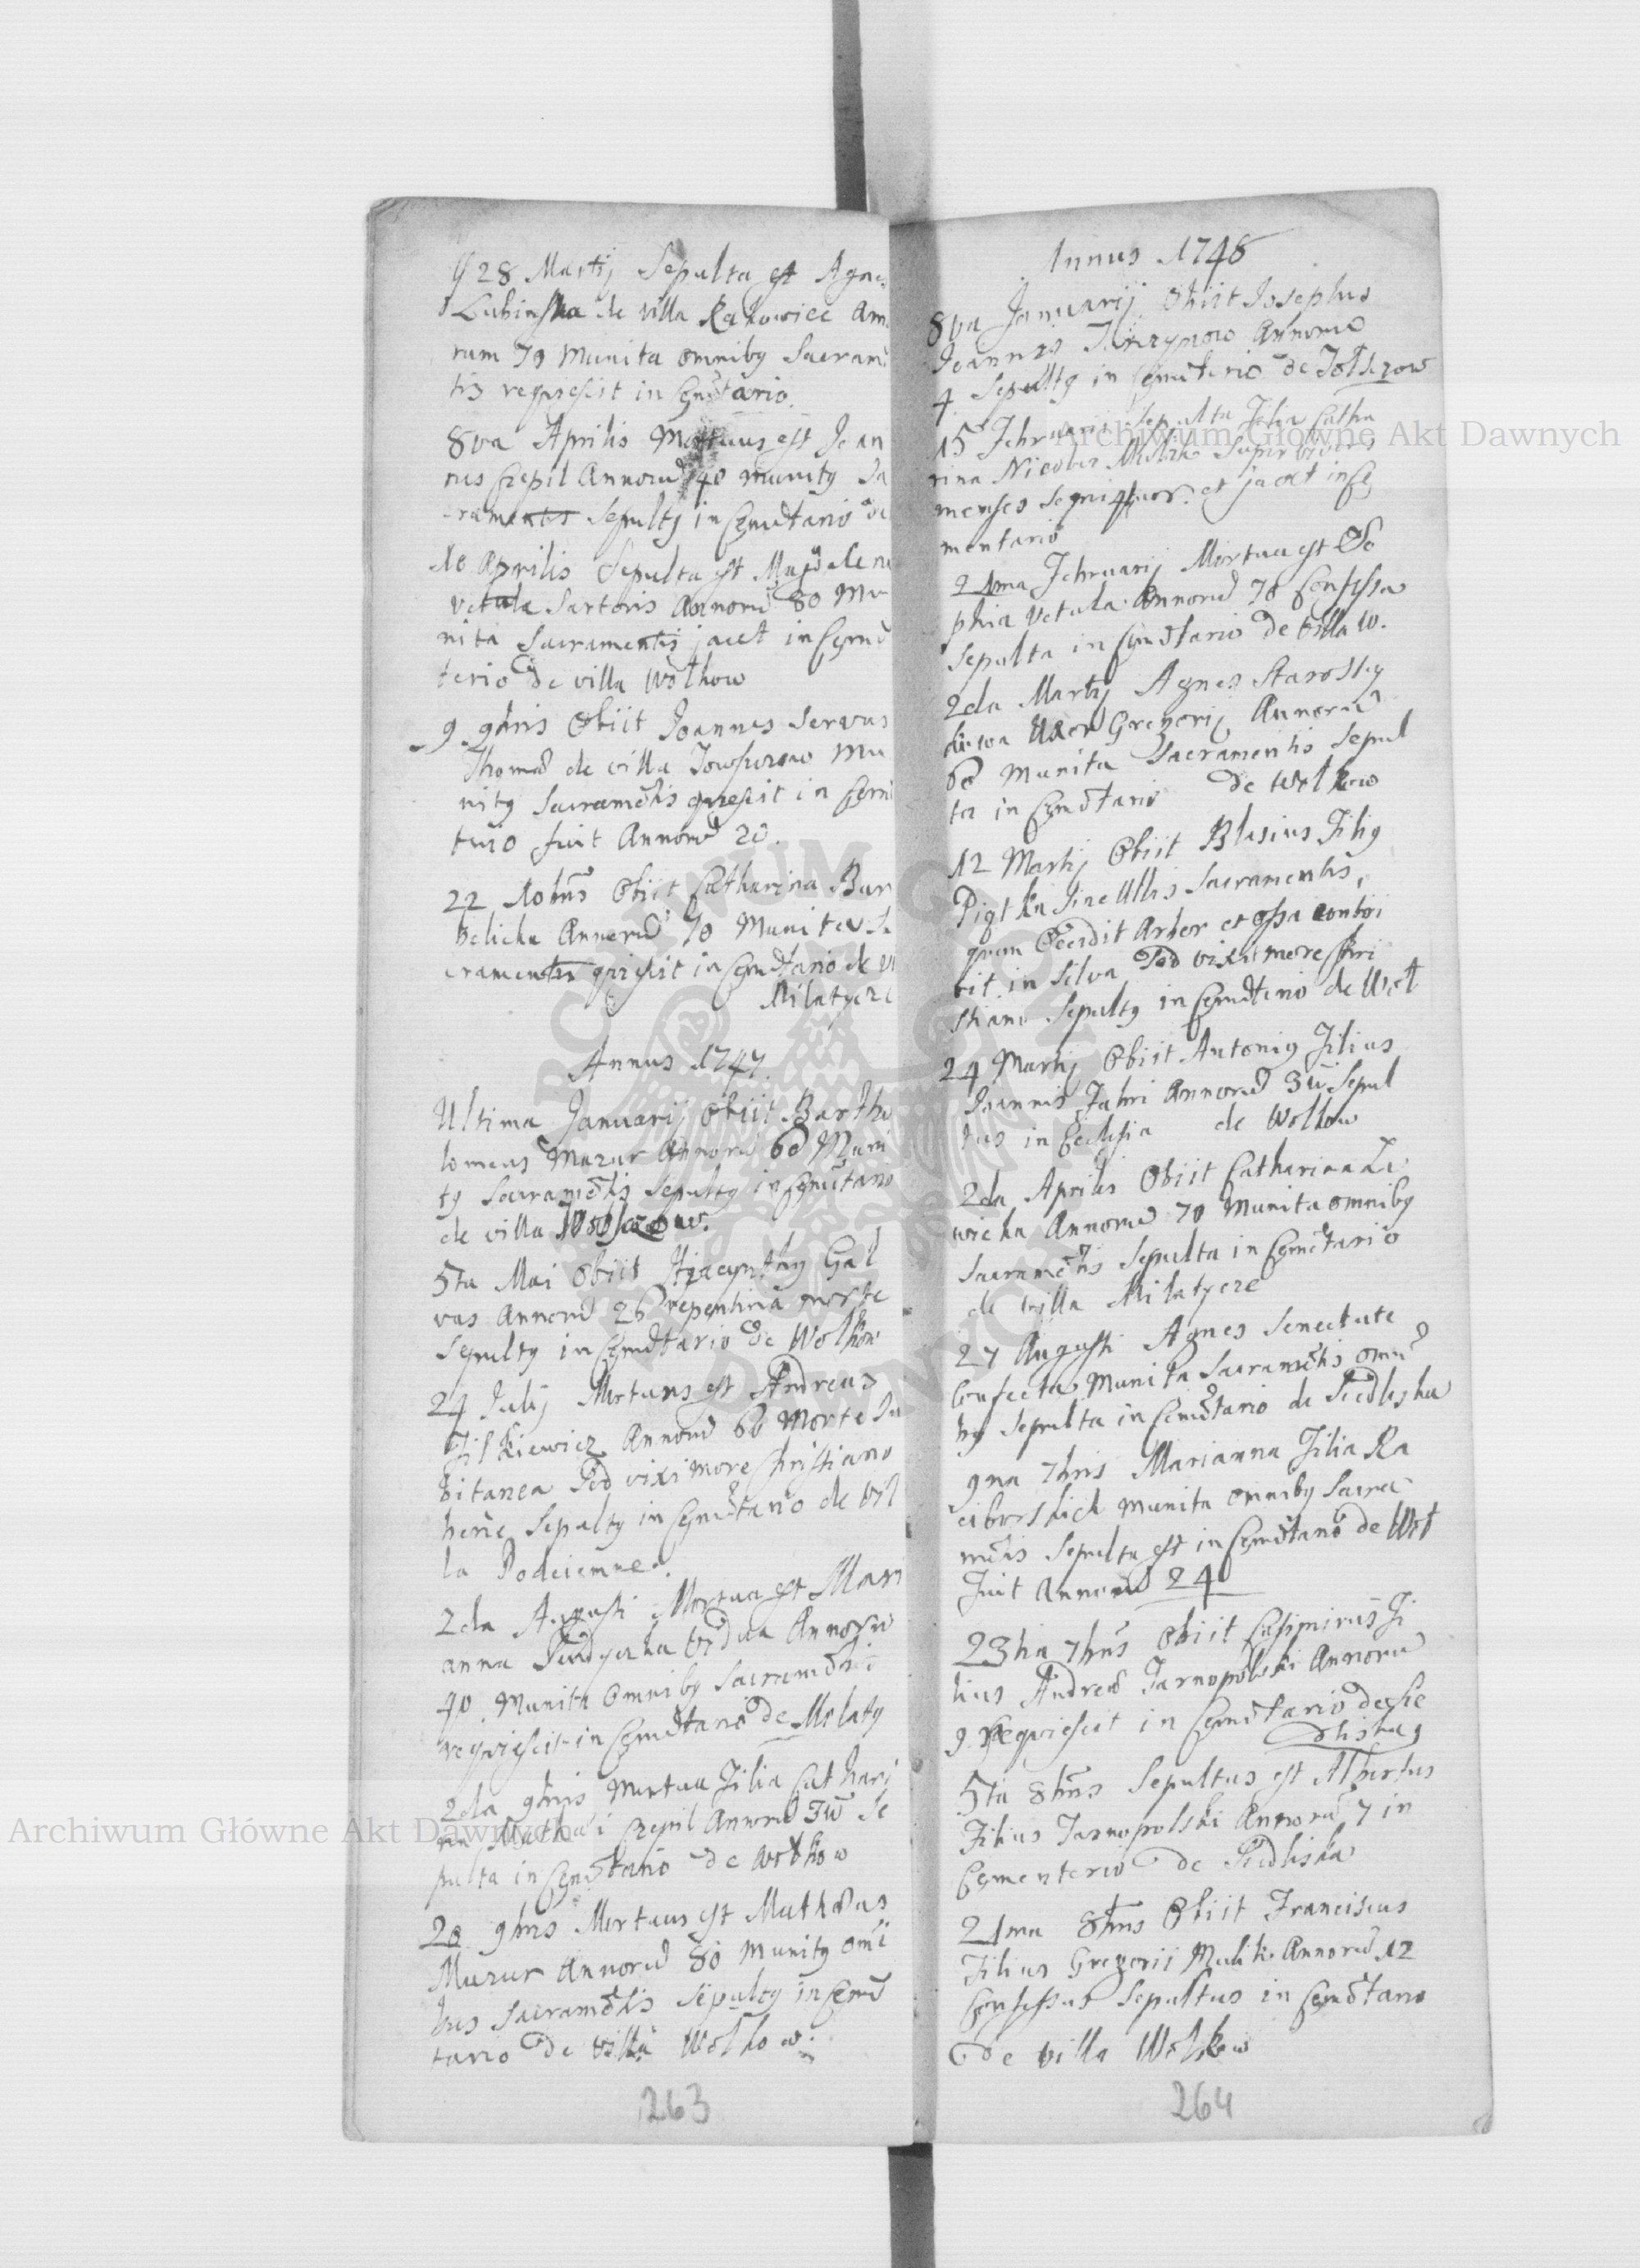 28 Martij Sepulta est Agnes
Lubinska de villa Rakowiec Anno
rum 70 Munita omniby Sacram
tis reqviescit in Cemetario.
8va Aprilis Mortuus est Joan
nes Czepil Annorum 40 munity Sa
cramentis Sepulty in Cemetario de
10 Aprilis Sepulta est Magdalena
Vetula Sartoris Annorum 80 Mu
nita Sacramentis jacet in Ceme
terio de villa Wolkow
9 9bris Obiit Joannes Servus
Thomæ de villa Mu
nity Sacramentis qviescit in Ceme
terio fuit Annorum 20.
22 Xobris Obiit Catharina Bar
belicka Annorum 70 Munita Sa
cramentis qviescit in Cemetario de vi
Milatycze
Annus 1747.
Ultima Januarij Obiit Bartho
lomeus Mazur Annorum 60 Muni
ty Sacramentis Sepulty in Cemetario
de villa
5ta Mai Obiit Hyacynthy Gal
vas Annorum 26 repentina morte
Sepulty in Cemetario de Wolkow
24 Julij Mortuus est Andreas
Filkiewicz Annorum 60 Morte Su
bitanea Sed vixit more Christiano
bene Sepulty in Cemetario de vil
la Podciemne.
2da Augusti Mortua est Mari
anna vidua Annorum
40 Munita Omniby Sacramentis
reqviescit in Cemetario de Milaty
2da 9bris Mortua Filia Cathari
na Mathæi Czepil Annorum 3um Se
pulta in Cemetario de Wolkow
20 9bris Mortuus est Mathæus
Mazur Annorum 80 Munity omni
bus Sacramentis Sepulty in Ceme
tario de villa Wolkow.
263
Annus 1748
8va Januarij Obiit Josephus
Joannis Annorum
4 Sepulty in Cemeterio de Tolszow
15 Februarii Sepulta Filia Catha
rina Nicolai Supervivens
menses et jacet in Ce
mentario
21ma Februarij Mortua est So
phia Vetula Annorum 70 Confessa
Sepulta in Cemetario de villa W.
2da Martij Agnes Starosty
kiwa Uxor Gregorij Annorum
60 Munita Sacramentis Sepul
ta in Cemetario de Wolkow
12 Martij Obiit Blasius Filiy
Piątka Sine Ullis Sacramentis,
quem Occidit Arbor et ossa contri
vit in Silva Sed vixit more Chri
stiano Sepulty in Cemeterio de Wol
24 Martij Obiit Antoniy Filius
Joannis Fabri Annorum 3um Sepul
tus in Ecclesia de Wolkow
2da Aprilis Obiit Catharina Le
wicka Annorum 70 Munita omniby
Sacramentis Sepulta in Cemetario
de villa Milatycze
27 Augusti Agnes Senectute
Confecta Munita Sacramentis omni
by Sepulta in Cemetario de Siedliska
9na 7bris Marianna Filia Ra
ciborskich munita omniby Sacra
mentis Sepulta est in Cemetario de Wol
Fuit Annorum 24
23tia 7bris Obiit Casimirus Fi
lius Andreæ Tarnopolski Annorum
9 Reqviescit in Cemetario de Sie
dliska
5ta 8bris Sepultus est Albertus
Filius Tarnopolski Annorum 7 in
Cementerio de Siedliska
21ma 8bris Obiit Franciscus
Filius Gregorii Mulik Annorum 12
Confessus Sepultus in Cemetario
de villa Wolkow
264
Archiwum Główne Akt Dawnych
Archiwum Główne Akt Dawnych